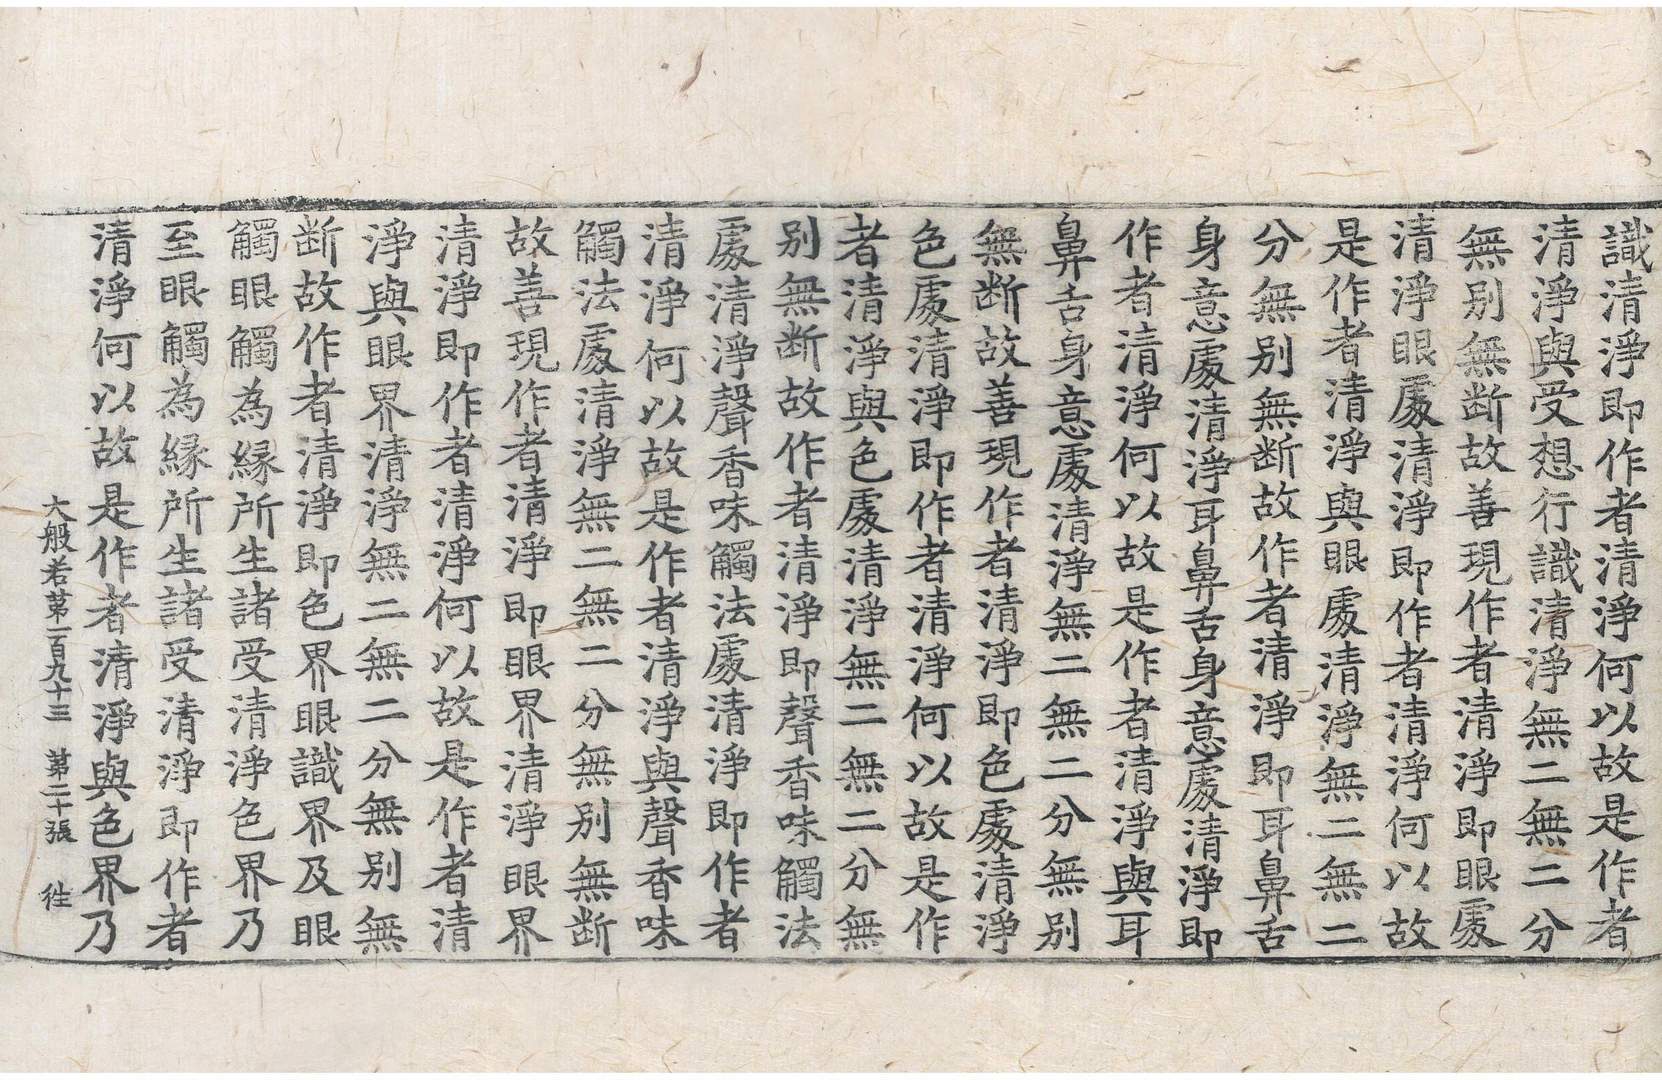 識清淨即作者清淨何以故是作者
清淨與受想行識清淨無二無二分
無别無断故善現作者清淨即眼處
清淨眼處清淨即作者清淨何以故
是作者清淨與眼處清淨無二無二
分無别無断故作者清淨即耳鼻舌
身意處清淨耳鼻舌身意處清淨即
作者清淨何以故是作者清淨與耳
鼻舌身意處清淨無二無二分無别
無断故善現作者清淨即色處清淨
色處清淨即作者清淨何以故是作
者清淨與色處清淨無二無二分無
别無断故作者清淨即聲香味觸法
處清淨聲香味觸法處清淨即作者
清淨何以故是作者清淨與聲香味
觸法處清淨無二無二分無别無断
故善現作者清淨即眼界清淨眼界
清淨即作者清淨何以故是作者清
淨與眼界清淨無二無二分無别無
断故作者清淨即色界眼識界及眼
觸眼觸為緣所生諸受清淨色界乃
至眼觸為緣所生諸受清淨即作者
清淨何以故是作者清淨與色界乃
大般若第一百九十三 第二十張 徃